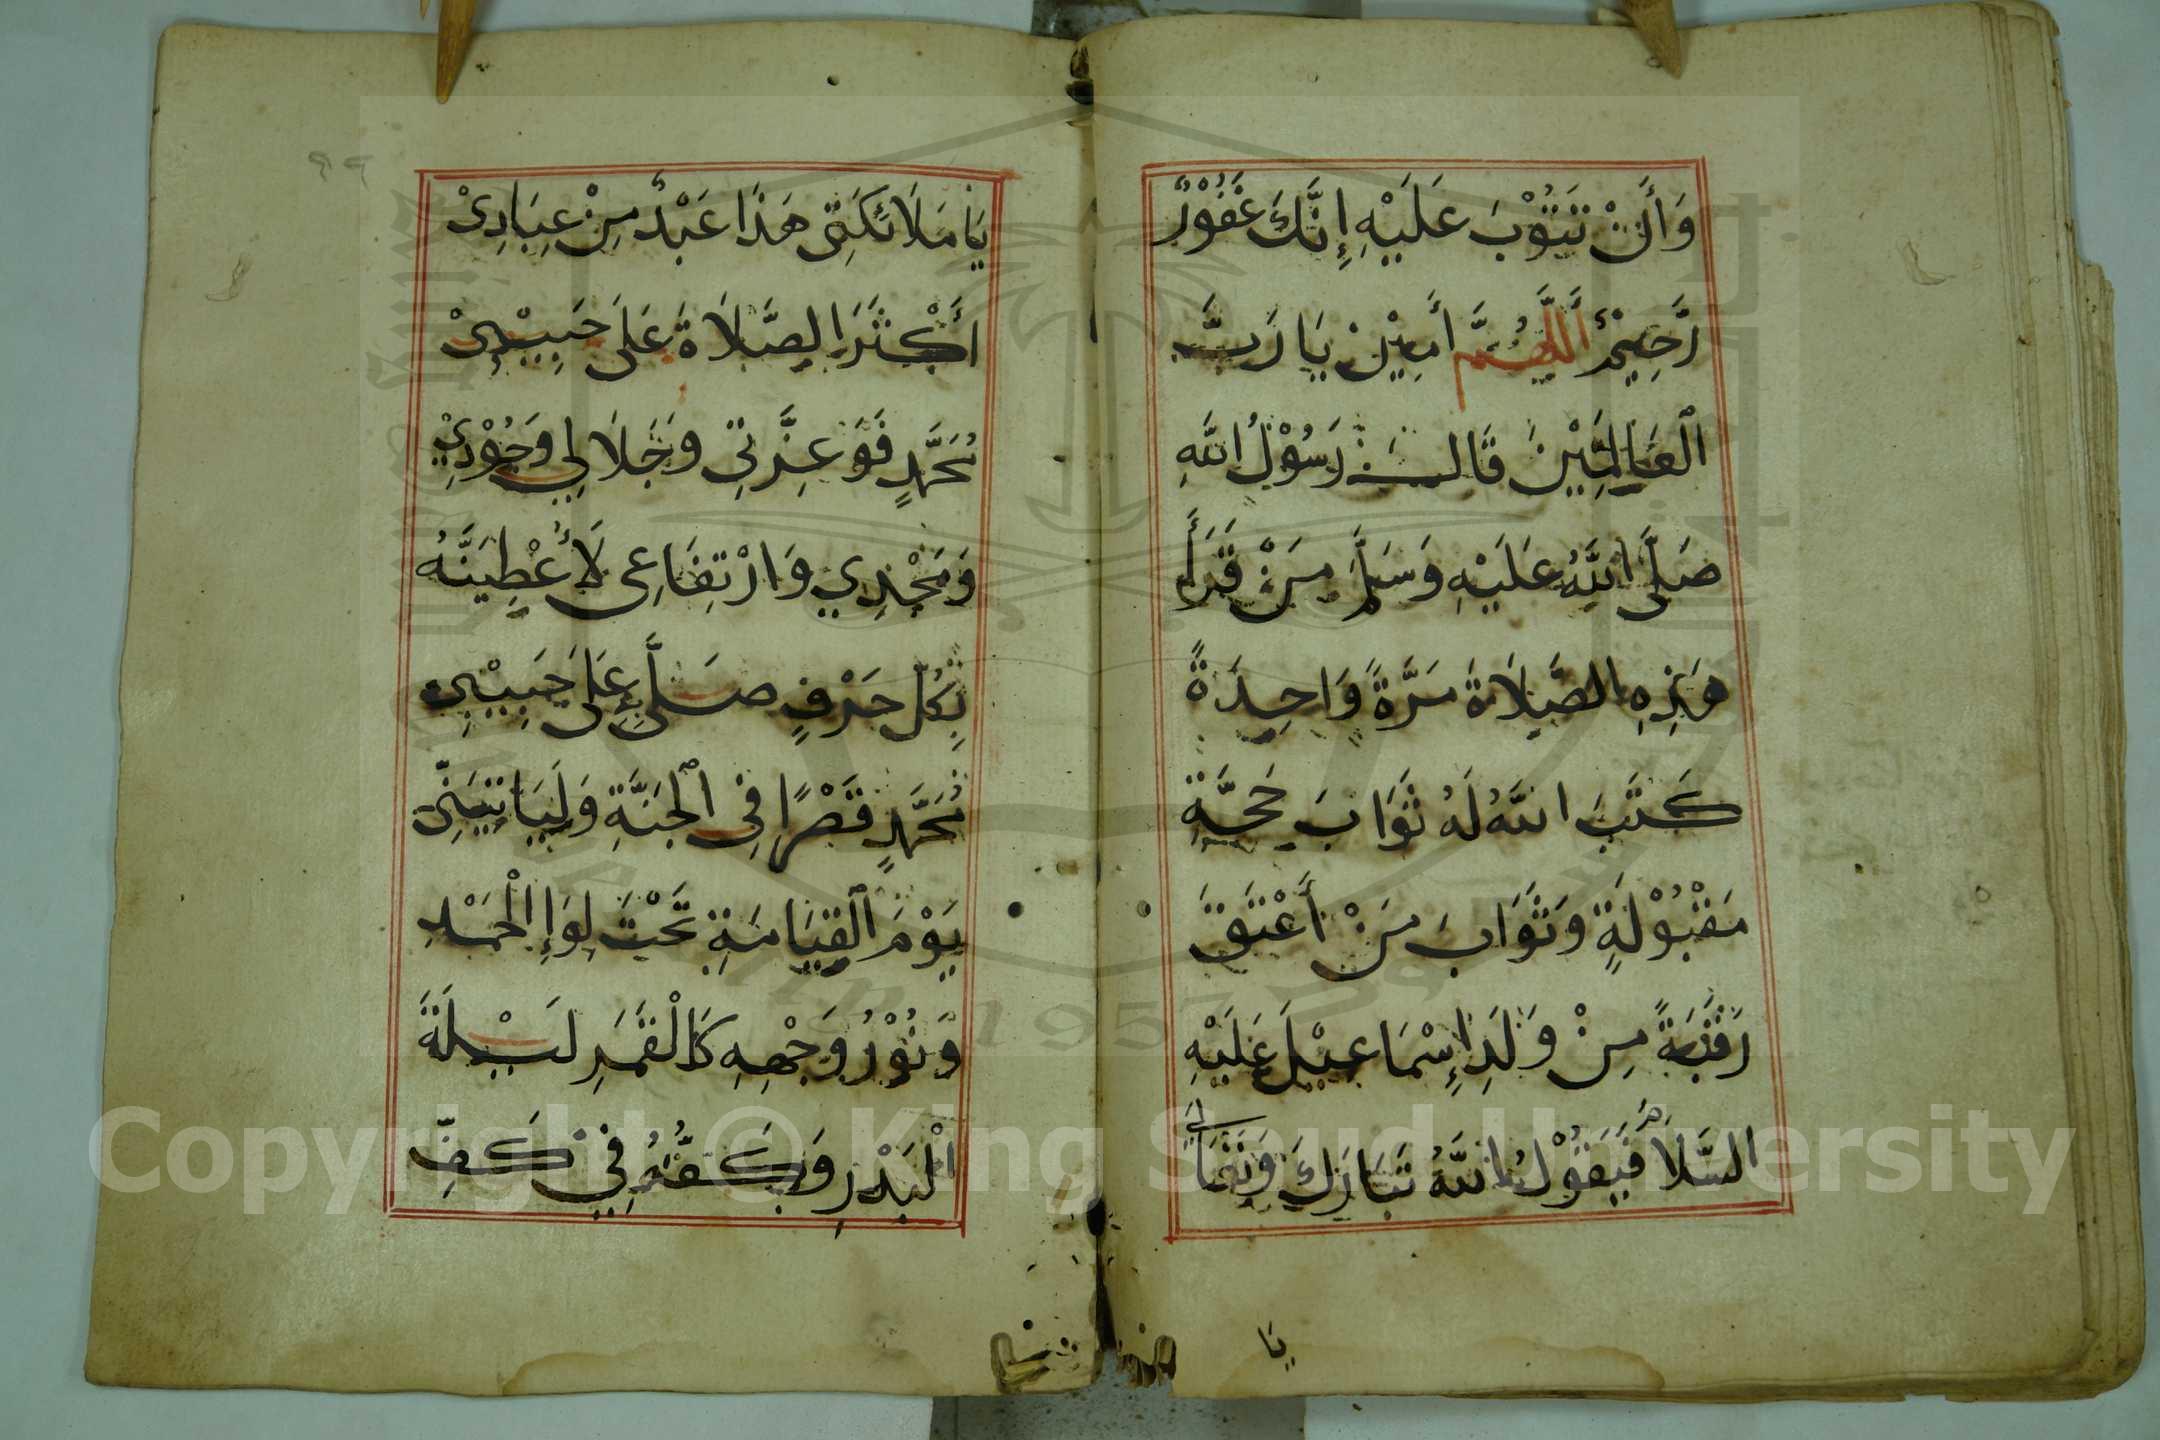 وَأَنْ تَتُوْبَ عَلَيْهِ إِنَّكَ غَفُوْرٌ
رَّحِيْمٌ أَللَّهُمَّ أَمِيْنْ يَا رَبَّ
الْعَالَمِيْنَ قَالَ رَسُوْلُ اللهِ
صَلَّى اللهُ عَلَيْهِ وَسَلَّمَ مَنْ قَرَأَ
هَذِهِ الصَّلَاةَ مَرَّةً وَاحِدَةً
كَتَبَ اللهُ لَهُ ثَوَابَ حَجَّةٍ
مَقْبُوْلَةٍ وَثَوَابَ مَنْ أَعْتَقَ
رَقَبَةً مِنْ وَلَدِ إِسْمَاعِيْلَ عَلَيْهِ
السَّلَام فَيَقُوْلُ اللهُ تَبَارَكَ وَتَعَالَى
يَا
٩٩
يَا مَلَائِكَتِى هَذَا عَبْدٌ مِنْ عِبَادِيْ
أَكْثَرَ الصَّلَاةَ عَلَى حَبِيْبِيْ
مُحَمَّدٍ فَوَعِزَّتِي وَجَلَالِي وَجُوْدِيْ
وَمَجْدِي وَارْتِفَاعِى لَأُعْطِيَنَّهُ
بِكُلِّ حَرْفٍ صَلَّى عَلَى حَبِيْبِى
مُحَمَّدٍ قَصْرًا فِى الْجَنَّةِ وَلَيَأتِيَنِّى
يَوْمَ الْقِيَامَةِ تَحْتَ لِوَإِ الْحَمْدِ
وَنُوْرُ وَجْهِهِ كَالْقَمَرِ لَيْلَةَ
الْبَدْرِ وَكَفُّهُ فِي كَفِّ
Copyright © King Saud University
1957